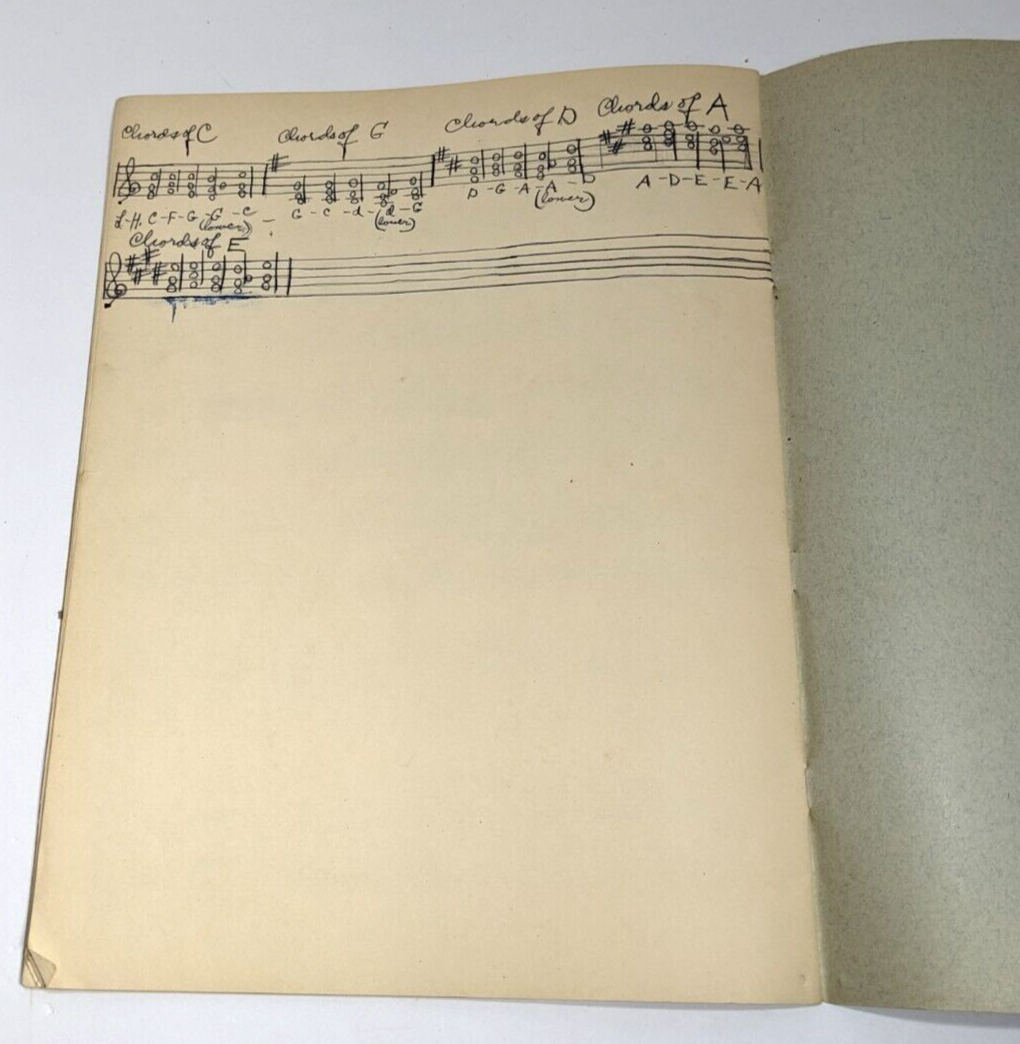 Chords of C Chords of G Chords of D Chords of A
L-H. C-F-G-G-C G-C-d-d-G D-G-A-A-D A-D-E-E-A
(lower) (lower) (lower)
Chords of E